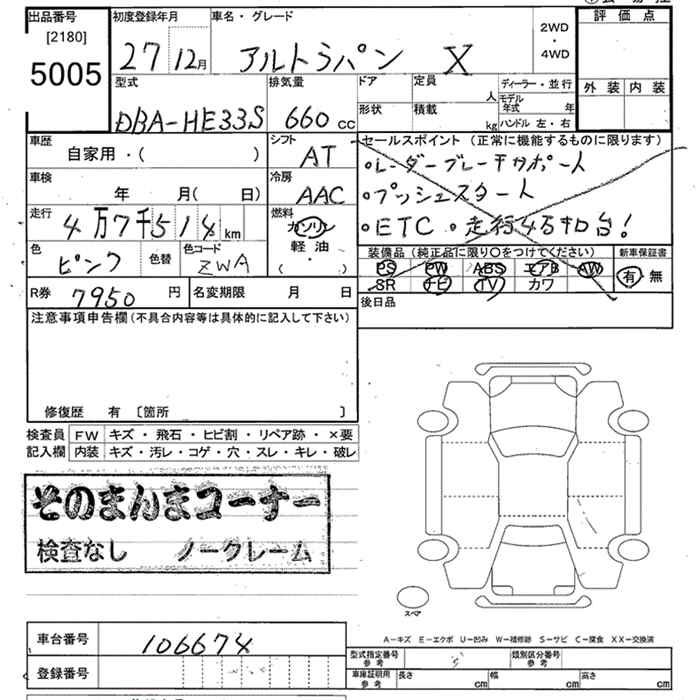 出品番号
[2180]
5005
初度登録年月
27 12月
車名・グレード
アルトラパン X
2WD
・
4WD
評価点
外装 内装
型式
DBA-HE33S
排気量
660 cc
ドア
定員
人
形状
積載
kg
ディーラー・並行
モデル
年式 年
ハンドル 左・右
車歴
自家用・( )
シフト
AT
セールスポイント (正常に機能するものに限ります)
・レーダーブレーキサポート
・プッシュスタート
・ETC ・走行4万キロ台!
車検
年 月( 日)
冷房
AAC
走行
4万7千514 km
燃料
ガソリン
軽油
( )
色
ピンク
色替
色コード
ZWA
装備品 (純正品に限り〇をつけてください)
PS PW ABS エアB AW
SR ナビ TV カワ
新車保証書
有 無
R券 7950 円
名変期限 月 日
後日品
注意事項申告欄(不具合内容等は具体的に記入して下さい)
修復歴 有 〔箇所 〕
検査員 FW キズ・飛石・ヒビ割・リペア跡・×要
記入欄 内装 キズ・汚レ・コゲ・穴・スレ・キレ・破レ
そのまんまコーナー
検査なし ノークレーム
スペア
A-キズ E-エクボ U-凹み W-補修跡 S-サビ C-腐食 XX-交換済
車台番号 106674
登録番号
型式指定番号
参考
類別区分番号
参考
車庫証明用
参考
長さ cm 幅 cm 高さ cm